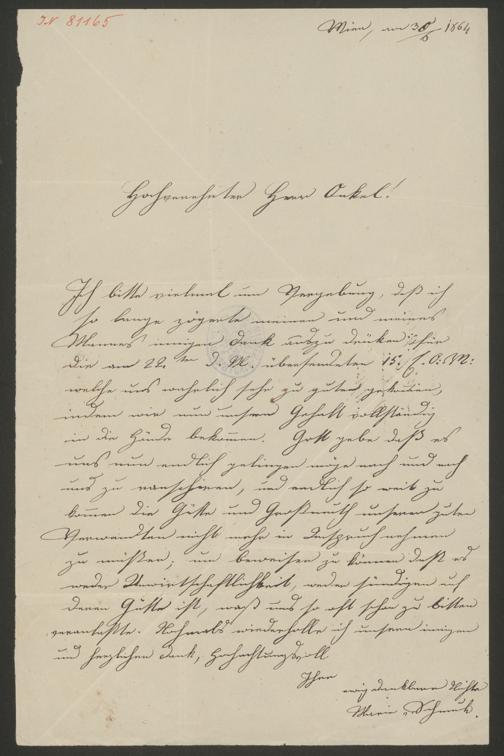 IN 81165
Wien, am 30/6 1864
Hochverehrter Herr Onkel!
Ich bitte vielmal um Vergebung, daß ich
so lange zögerte meinen und meines
Mannes innigen Dank auszudrücken für
die am 22.ten d. M. übersendeten 15 f. O. W:
welche uns wahrlich sehr zu guten
indem wir nun unsern Gehalt vollständig
in die Hände bekommen. Gott gebe daß es
uns nun endlich gelingen möge nach und nach
uns zu und endlich so weit zu
kommen die Güte und Großmuth unserer guten
Verwandten nicht mehr in Anspruch nehmen
zu müßen; um beweisen zu können daß es
weder Unwirtschaftlichkeit, weder
deren Güte ist, was uns so oft schon zu bitten
veranlaßte. Nochmals wiederholle ich unsern innigen
und herzlichen Dank, Hochachtungsvoll
Ihre
ewig dankbare Nichte
Marie Schmuk.